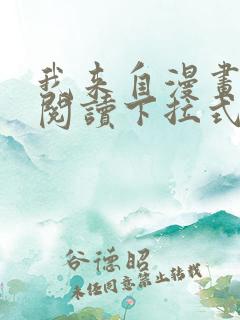 我来自漫畫
閱讀下拉式
谷德昭
未经同意禁止转载